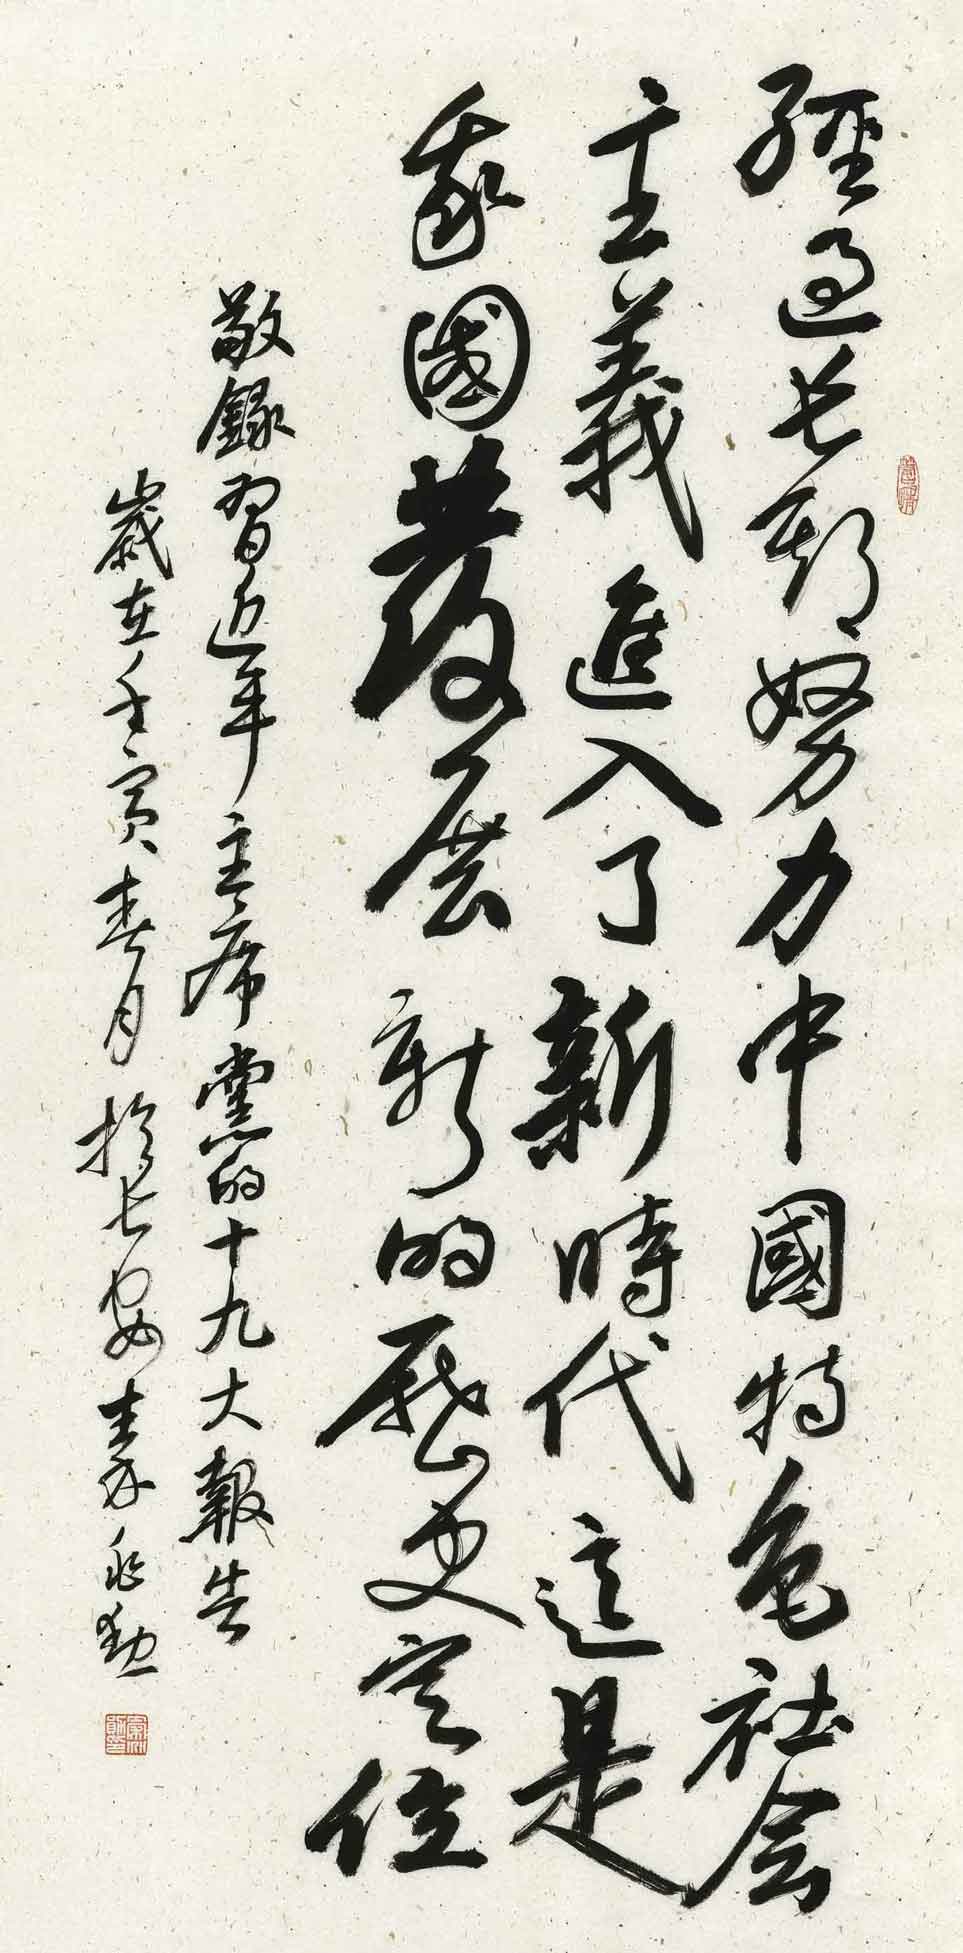 經過長期努力中國特色社会
主義進入了新時代這是
我國發展新的歷史定位
敬錄習近平主席黨的十九大報告
歲在壬寅春月於長安